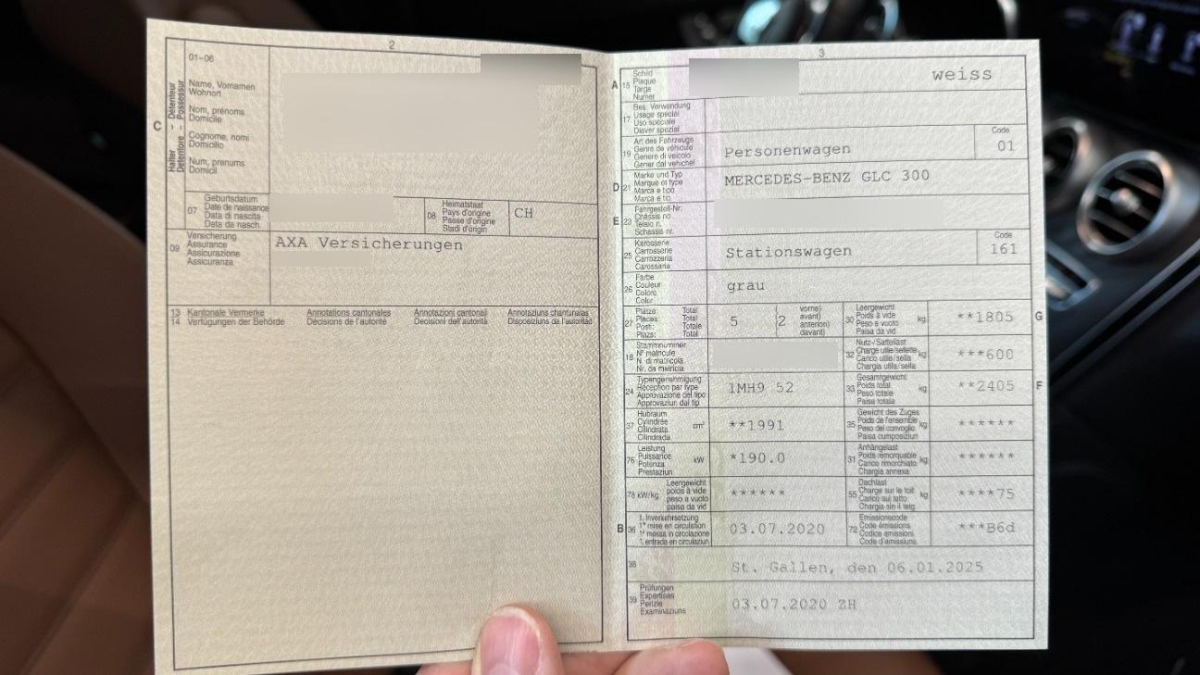 2
01-06
C
Halter - Détenteur
Detentore - Possessur
Name, Vornamen
Wohnort
Nom, prénoms
Domicile
Cognome, nomi
Domicilio
Num, prenums
Domicil
07
Geburtsdatum
Date de naissance
Data di nascita
Data da nasch.
08
Heimatstaat
Pays d'origine
Paese d'origine
Stadi d'origin
CH
09
Versicherung
Assurance
Assicurazione
Assicuranza
AXA Versicherungen
13 Kantonale Vermerke Annotations cantonales Annotazioni cantonali Annotaziuns chantunalas
14 Verfügungen der Behörde Décisions de l'autorité Decisioni dell'autorità Disposiziuns da l'autoritad
3
A
15
Schild
Plaque
Targa
Numer
weiss
17
Bes. Verwendung
Usage spécial
Uso speciale
Diever spezial
19
Art des Fahrzeugs
Genre de véhicule
Genere di veicolo
Gener dal vehichel
Personenwagen
Code
01
D
21
Marke und Typ
Marque et type
Marca e tipo
Marca e tip
MERCEDES-BENZ GLC 300
E
23
Fahrgestell-Nr.
Châssis no
Telaio n.
Schassis nr.
25
Karosserie
Carrosserie
Carrozzeria
Carossaria
Stationswagen
Code
161
26
Farbe
Couleur
Colore
Color
grau
27
Plätze: Total
Places: Total
Posti: Totale
Plazs: Total
5
2
vorne)
avant)
anteriori)
davant)
30
Leergewicht
Poids à vide
Peso a vuoto
Paisa da vid
kg
**1805
G
18
Stammnummer
N° matricule
N. di matricola
Nr. da matricla
32
Nutz-/Sattellast
Charge utile/sellette
Carico utile/sella
Chargia utila/sella
kg
***600
24
Typengenehmigung
Réception par type
Approvazione del tipo
Approvaziun dal tip
1MH9 52
33
Gesamtgewicht
Poids total
Peso totale
Paisa totala
kg
**2405
F
37
Hubraum
Cylindrée
Cilindrata
Cilindrada
cm³
**1991
35
Gewicht des Zuges
Poids de l'ensemble
Peso del convoglio
Paisa cumposiziun
kg
******
76
Leistung
Puissance
Potenza
Prestaziun
kW
*190.0
31
Anhängelast
Poids remorquable
Carico rimorchiato
Chargia annexa
kg
******
78 kW/kg
Leergewicht
poids à vide
peso a vuoto
paisa da vid
******
55
Dachlast
Charge sur le toit
Carico sul tetto
Chargia sin il tetg
kg
****75
B
36
1. Inverkehrsetzung
1re mise en circulation
1a messa in circolazione
1. entrada en circulaziun
03.07.2020
72
Emissionscode
Code émissions
Codice emissioni
Code d'emissiuns
***B6d
38
St. Gallen, den 06.01.2025
39
Prüfungen
Expertises
Perizie
Examinaziuns
03.07.2020 ZH